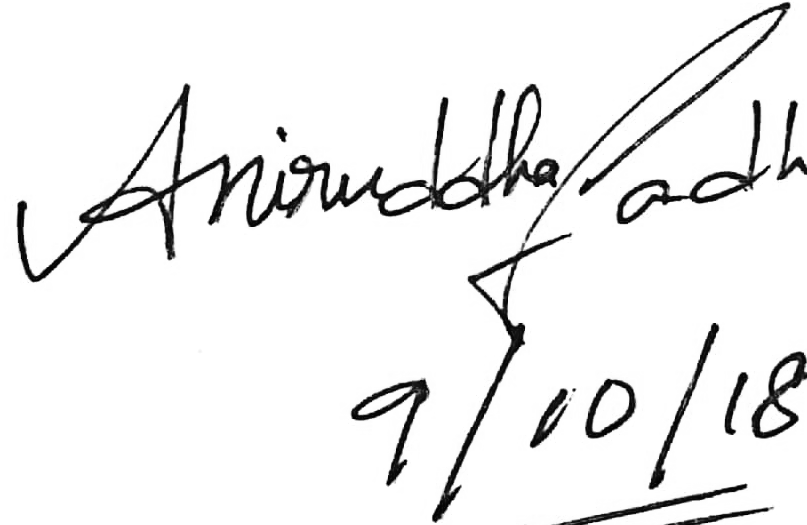 Aniruddha Padh
9/10/18